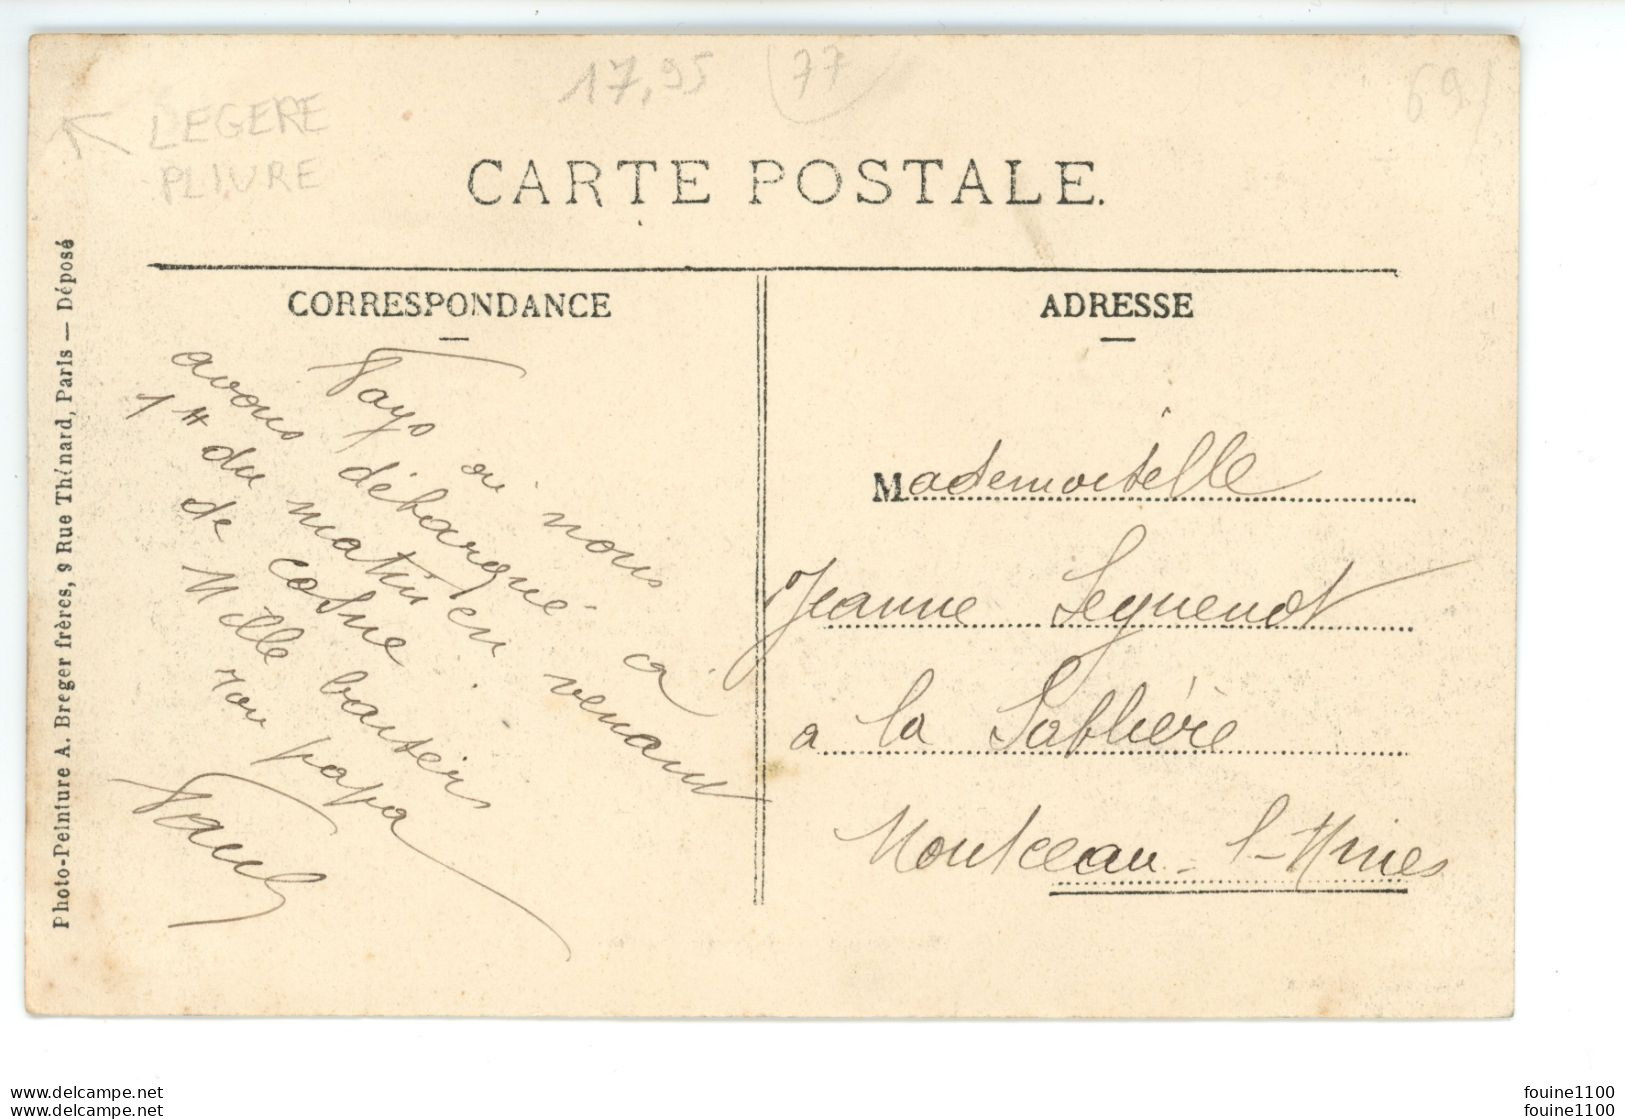 17,95 77 69/
LEGERE
PLIURE
CARTE POSTALE.
CORRESPONDANCE
Pays où nous
avons débarqué à
1H du matin en venant
de Cosne
Mille baisers
ton papa
Paul
ADRESSE
Mademoiselle
Jeanne Seguenot
a la Sablière
Montceau-l-Mines
Photo-Peinture A. Breger frères, 9 Rue Thénard, Paris — Déposé
www.delcampe.net
www.delcampe.net
fouine1100
fouine1100